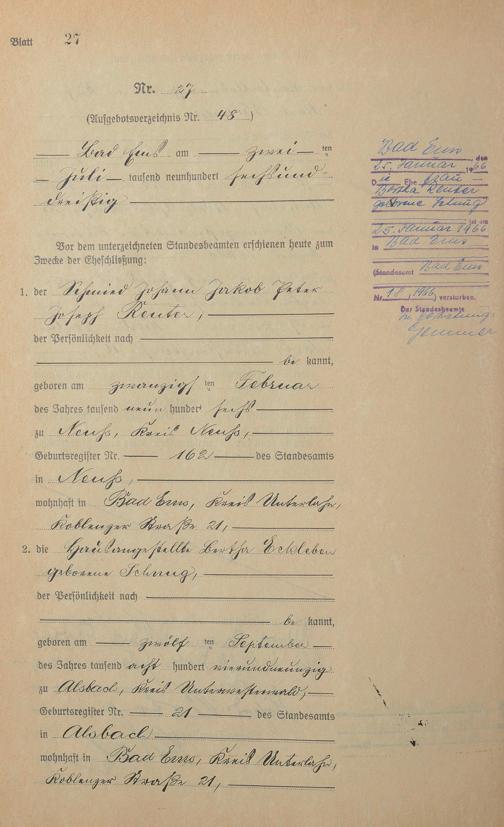 Blatt 27
Nr. 27
(Aufgebotsverzeichnis Nr. 48)
Bad Ems am zwei ten
Juli tausend neunhundert sechsund-
dreißig
Vor dem unterzeichneten Standesbeamten erschienen heute zum
Zwecke der Eheschließung:
1. der Schmied Johann Jakob Peter
Joseph Reuter,
der Persönlichkeit nach
be kannt,
geboren am zwanzigs ten Februar
des Jahres tausend neun hundert sechs
zu Neuß, Kreis Neuß,
Geburtsregister Nr. 162 des Standesamts
in Neuß,
wohnhaft in Bad Ems, Kreis Unterlahn,
Koblenzer Straße 21,
2. die Hausangestellte Bertha Eckleben
geborene Schung,
der Persönlichkeit nach
be kannt,
geboren am zwölf ten September
des Jahres tausend acht hundert vierundneunzig
zu Alsbach, Kreis Unterwesterwald,
Geburtsregister Nr. 21 des Standesamts
in Alsbach
wohnhaft in Bad Ems, Kreis Unterlahn,
Koblenzer Straße 21,
Bad Ems
den
25. Januar 1966
D ie Ehefrau
Bertha Reuter
geborene
ist am
25. Januar 1966
in Bad Ems
(Standesamt Bad Ems
Nr. 18/1966) verstorben.
Der Standesbeamte
In Vertretung